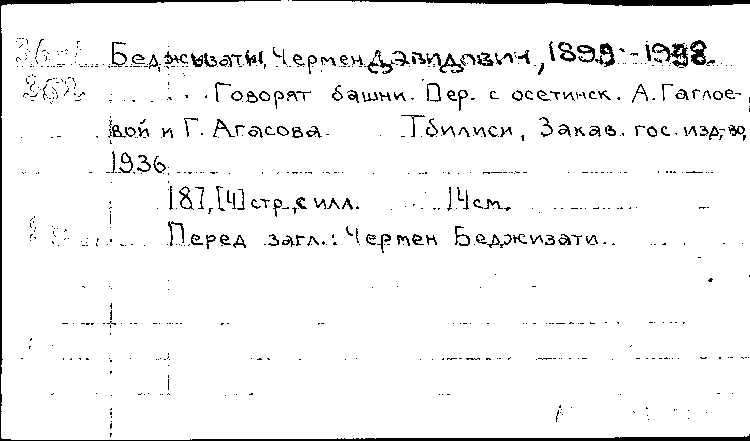 Беджызаты, Чермен Давидович, 1899-1938.
Говорят башни. Пер. с осетинск. А. Гаглое-
вой и Г. Агасова. Тбилиси, Закав. гос. изд-во,
1936
187, [4] стр., с илл. 14 см.
Перед загл.: Чермен Беджизати.